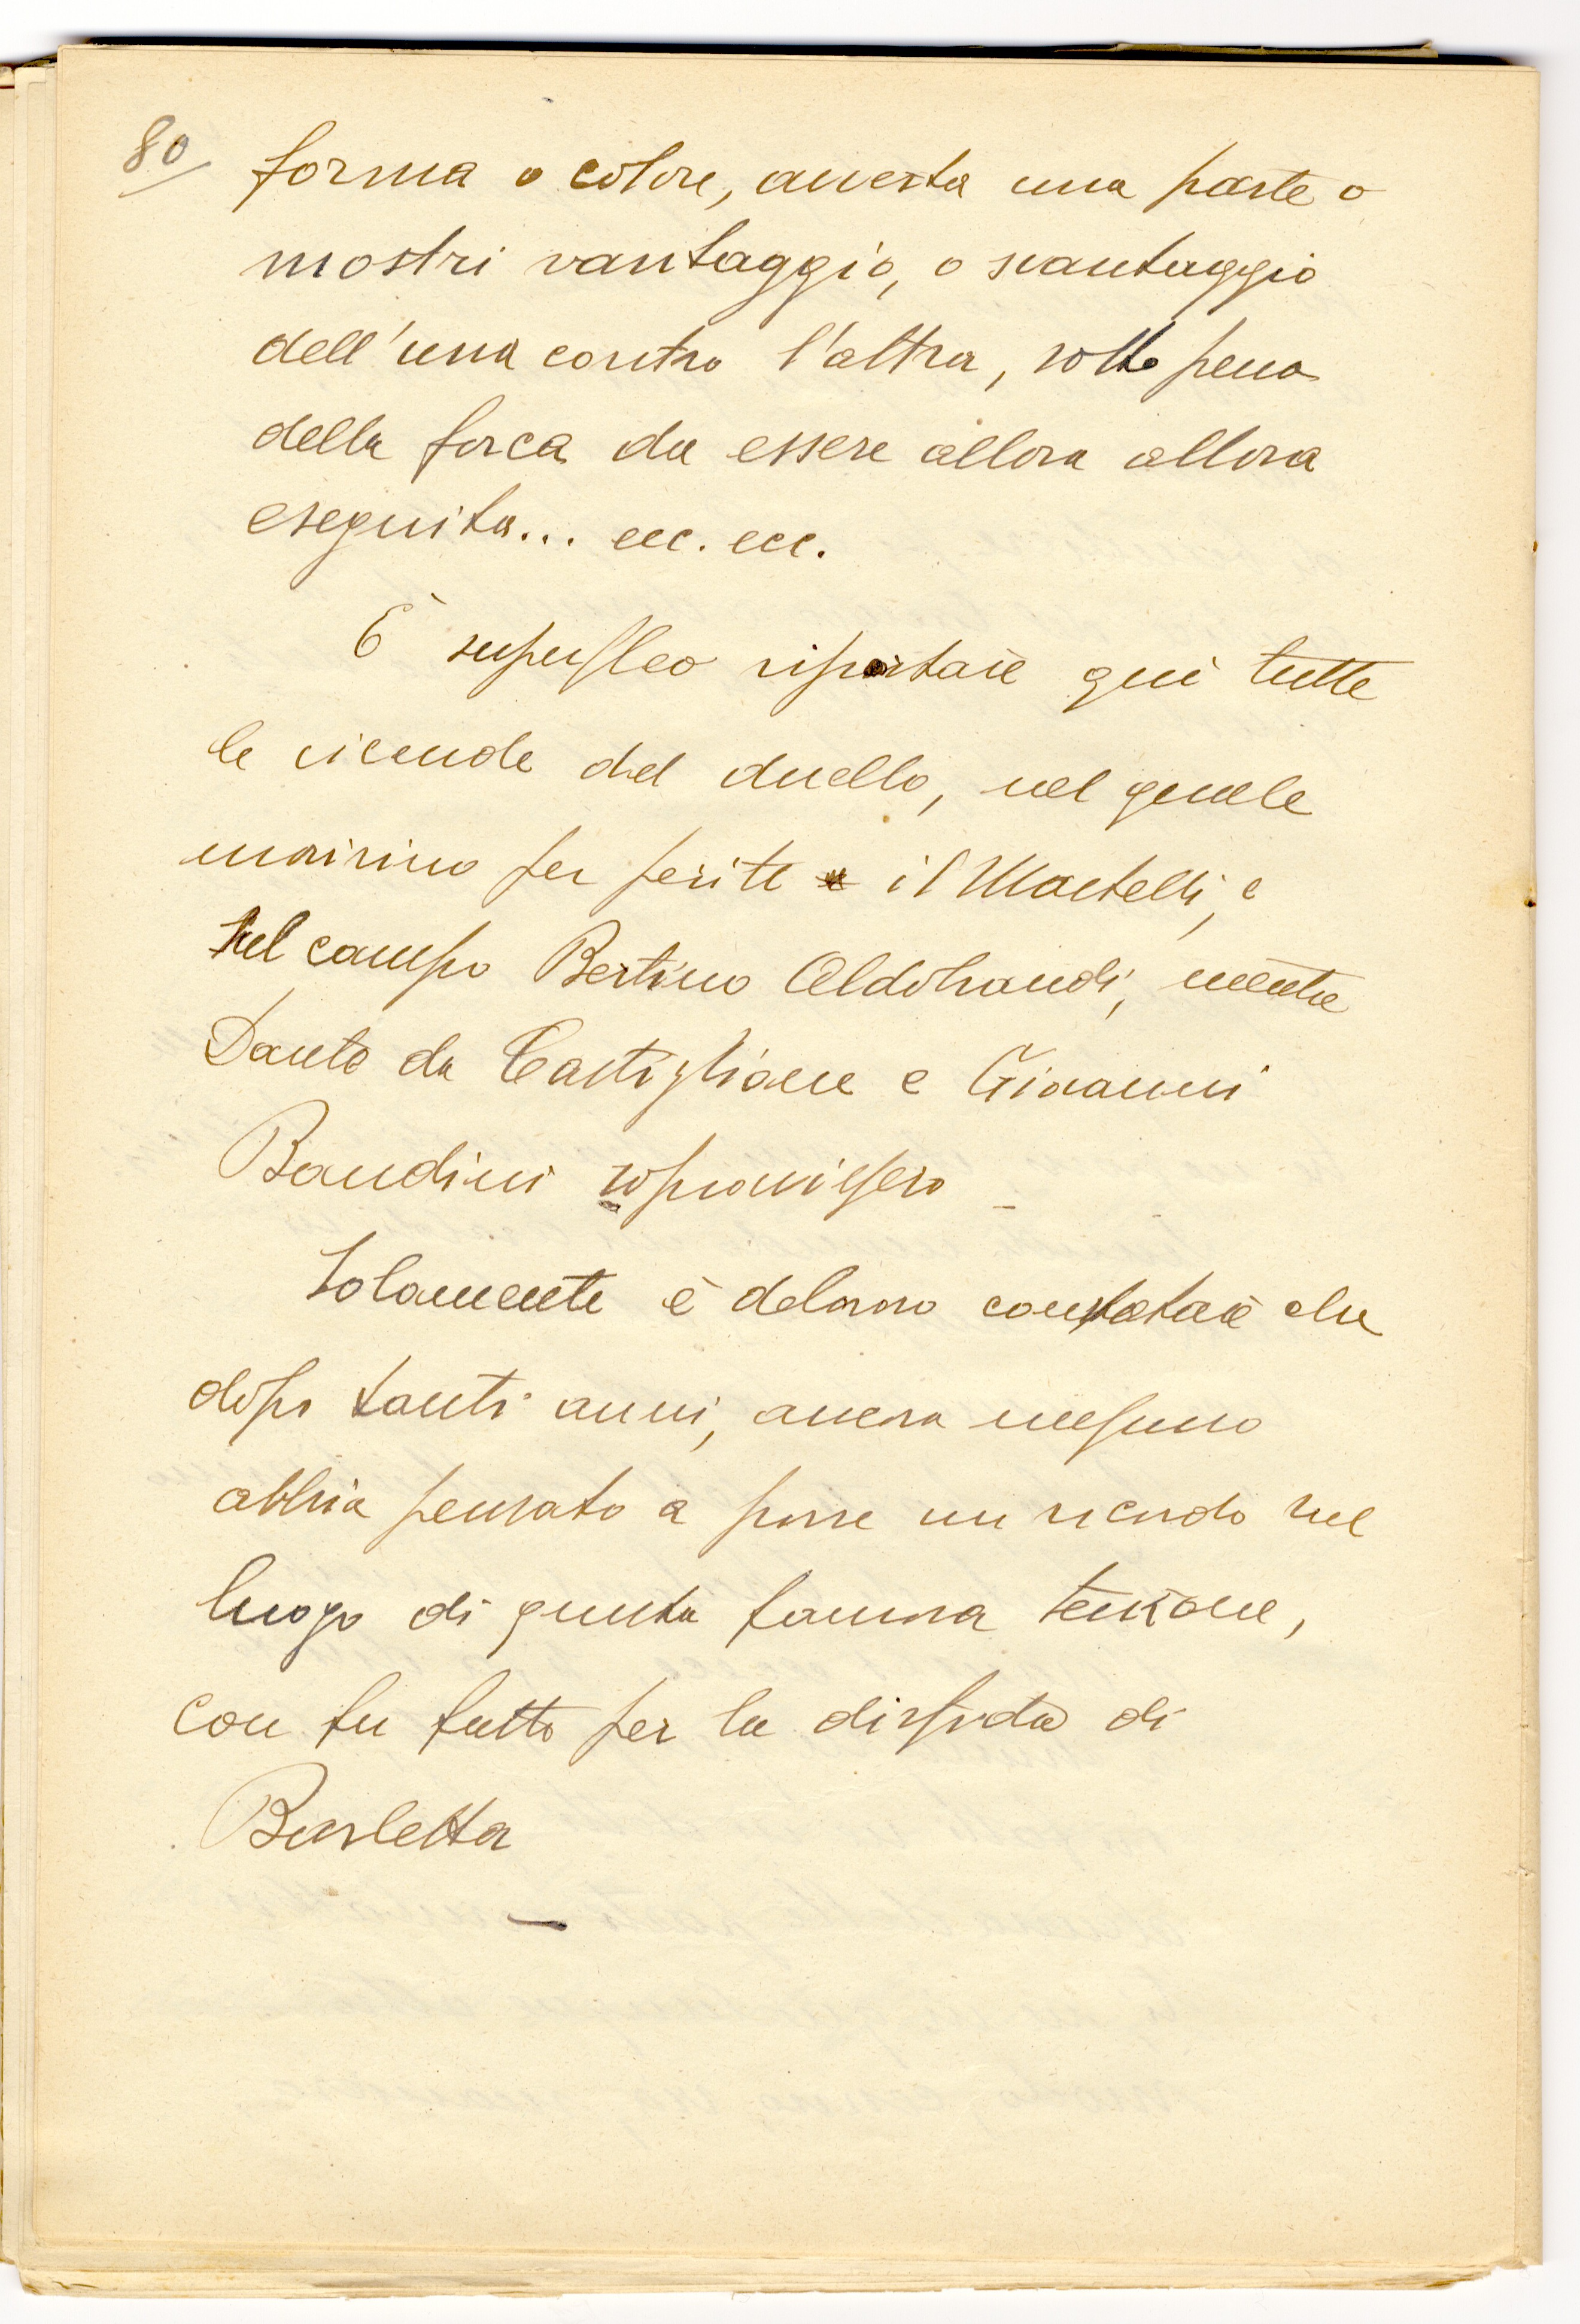 80
forma o colore, avverta una parte o
mostri vantaggio, o svantaggio
dell'una contro l'altra, sotto pena
della forca da essere allora allora
eseguita... ecc. ecc.
È superfluo riportare qui tutte
le vicende del duello, nel quale
morirono per ferite il Martelli, e
sul campo Bertino Aldobrandi, mentre
Dante da Castiglione e Giovanni
Bandini sopravissero -
Solamente è doloroso constatare che
dopo tanti anni, ancora nessuno
abbia pensato a porre un ricordo sul
luogo di questa famosa tenzone,
come fu fatto per la disfida di
Barletta